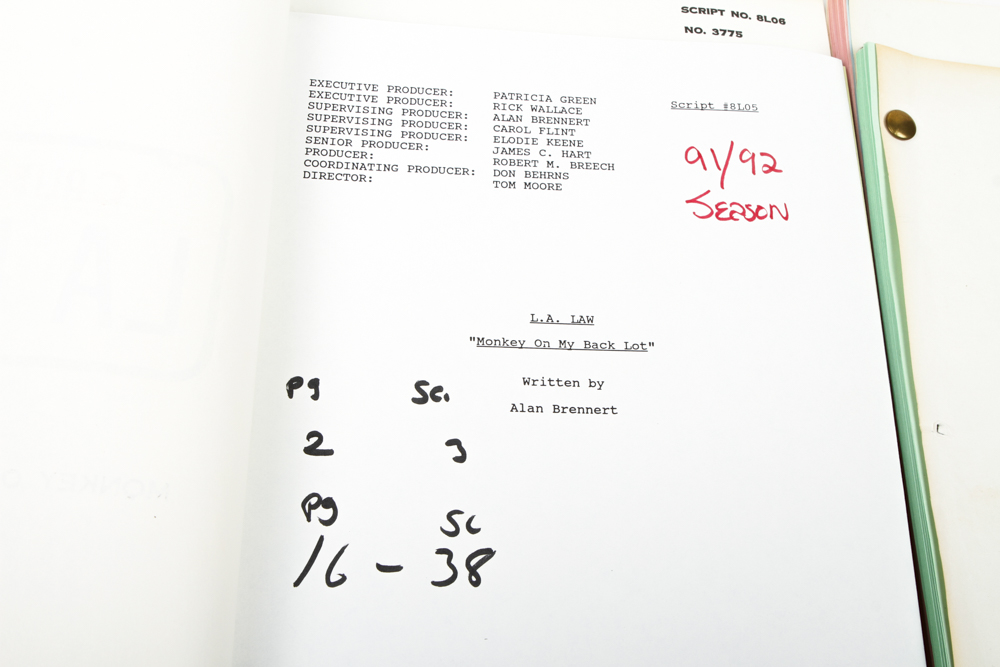 SCRIPT NO. 8L06
NO. 3775
EXECUTIVE PRODUCER: PATRICIA GREEN
EXECUTIVE PRODUCER: RICK WALLACE
SUPERVISING PRODUCER: ALAN BRENNERT
SUPERVISING PRODUCER: CAROL FLINT
SUPERVISING PRODUCER: ELODIE KEENE
SENIOR PRODUCER: JAMES C. HART
PRODUCER: ROBERT M. BREECH
COORDINATING PRODUCER: DON BEHRNS
DIRECTOR: TOM MOORE
Script #8L05
91/92
SEASON
L.A. LAW
"Monkey On My Back Lot"
Written by
Alan Brennert
Pg Sc.
2 3
Pg Sc
16 - 38